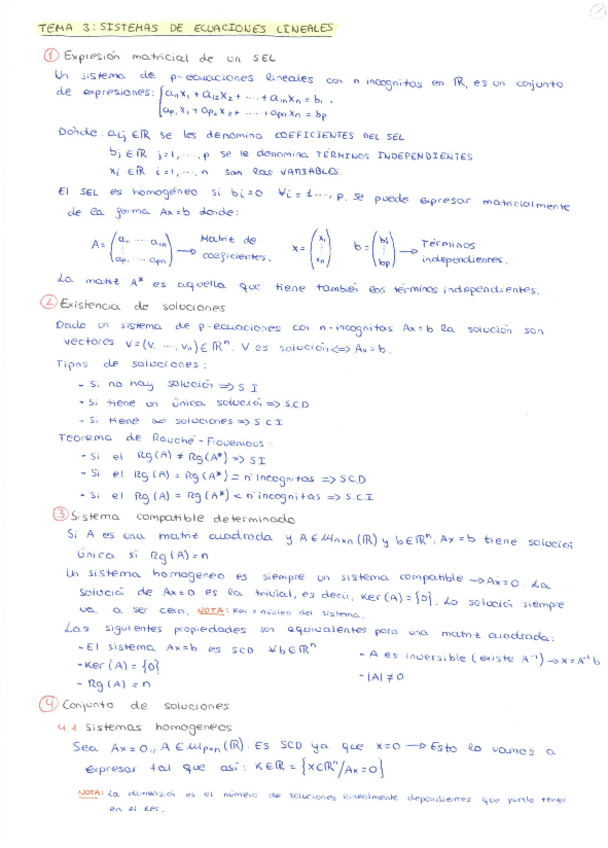 TEMA 3: SISTEMAS DE ECUACIONES LINEALES
① Expresión matricial de un SEL
Un sistema de p-ecuaciones lineales con n incognitas en ℝ, es un conjunto
de expresiones: { a₁₁x₁ + a₁₂x₂ + ... + a₁ₙxₙ = b₁.
aₚ₁x₁ + aₚ₂x₂ + ... + aₚₙxₙ = bₚ
Donde: aᵢⱼ ∈ ℝ se les denomina COEFICIENTES DEL SEL
bⱼ ∈ ℝ j=1, ..., p se le denomina TÉRMINOS INDEPENDIENTES
xᵢ ∈ ℝ i=1, ..., n son las VARIABLES.
El SEL es homogéneo si bᵢ=0 ∀i = 1..., p. se puede expresar matricialmente
de la forma Ax=b donde:
A = (a₁₁ ... a₁ₙ ⋮ aₚ₁ ... aₚₙ) → Matriz de coeficientes. x = (x₁ ⋮ xₙ) b = (b₁ ⋮ bₚ) → Términos independientes.
La matriz A* es aquella que tiene también los términos independientes.
② Existencia de soluciones
Dado un sistema de p-ecuaciones con n-incognitas Ax=b la solución son
vectores v=(v₁ ..., vₙ) ∈ ℝⁿ. V es solución <=> Av=b.
Tipos de soluciones:
- Si no hay solución => S.I
- Si tiene un única solución => S.C.D
- Si tiene ∞ soluciones => S.C.I
Teorema de Rouché-Frovenious:
- Si el Rg(A) ≠ Rg(A*) => SI
- Si el Rg(A) = Rg(A*) = nº incognitas => S.C.D
- Si el Rg(A) = Rg(A*) < nº incognitas => S.C.I
③ Sistema compatible determinado
Si A es una matriz cuadrada y A ∈ Mₙₓₙ(ℝ) y b ∈ ℝⁿ, Ax = b tiene solución
única si Rg(A)=n
Un sistema homogeneo es siempre un sistema compatible → Ax=0. La
solución de Ax=0 es la trivial, es decir, Ker(A)={0}. La solución siempre
va a ser cero. NOTA: Ker = núcleo del sistema.
Las siguientes propiedades son equivalentes para una matriz cuadrada:
- El sistema Ax=b es SCD ∀b∈ℝⁿ
- Ker(A) = {0}
- Rg(A) = n
- A es inversible (existe A⁻¹) → x = A⁻¹b
- |A| ≠ 0
④ Conjunto de soluciones
4.1 Sistemas homogeneos
Sea Ax=0,, A ∈ Mₚₓₙ(ℝ). Es SCD ya que x=0 → Esto lo vamos a
expresar tal que así: KER = {x∈ℝⁿ/Ax=0}
NOTA: La dimensión es el número de soluciones linealmente dependientes que puedo tener
en el Ker.